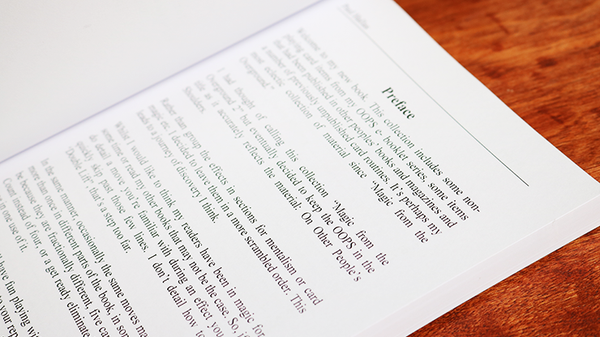 Preface
Welcome to my new book. This collection includes some non-
mixing card items from my OOPS e- booklet series, some items
that had been published in other peoples' books and magazines and
a number of previously unpublished card routines. It's perhaps my
most selective collection of material since "Magic from the
Overground."
I had thought of calling this collection "Magic from the
Overground 2" but eventually decided to keep the OOPS in the
title as it accurately reflects the material. On Other People's
Shoulders.
Rather than group the effects in sections for mentalism or card
magic etc. I decided to leave them in a more scrambled order. This
leads to a journey of discovery I think.
Whilst I would like to think my readers have been in magic for
some time or read my other books that may not be the case. So, if
do detail a move you're familiar with during an effect you
quickly skip past those few lines. I don't detail how to
"Double Lift", that's a step too far.
In the same manner occasionally the same moves me
more than once in different parts of the book, in som
be because they are fractionally different, five car
Count instead of four, or a get ready eliminate
in one use of it.
have fun playing wi
to your rep